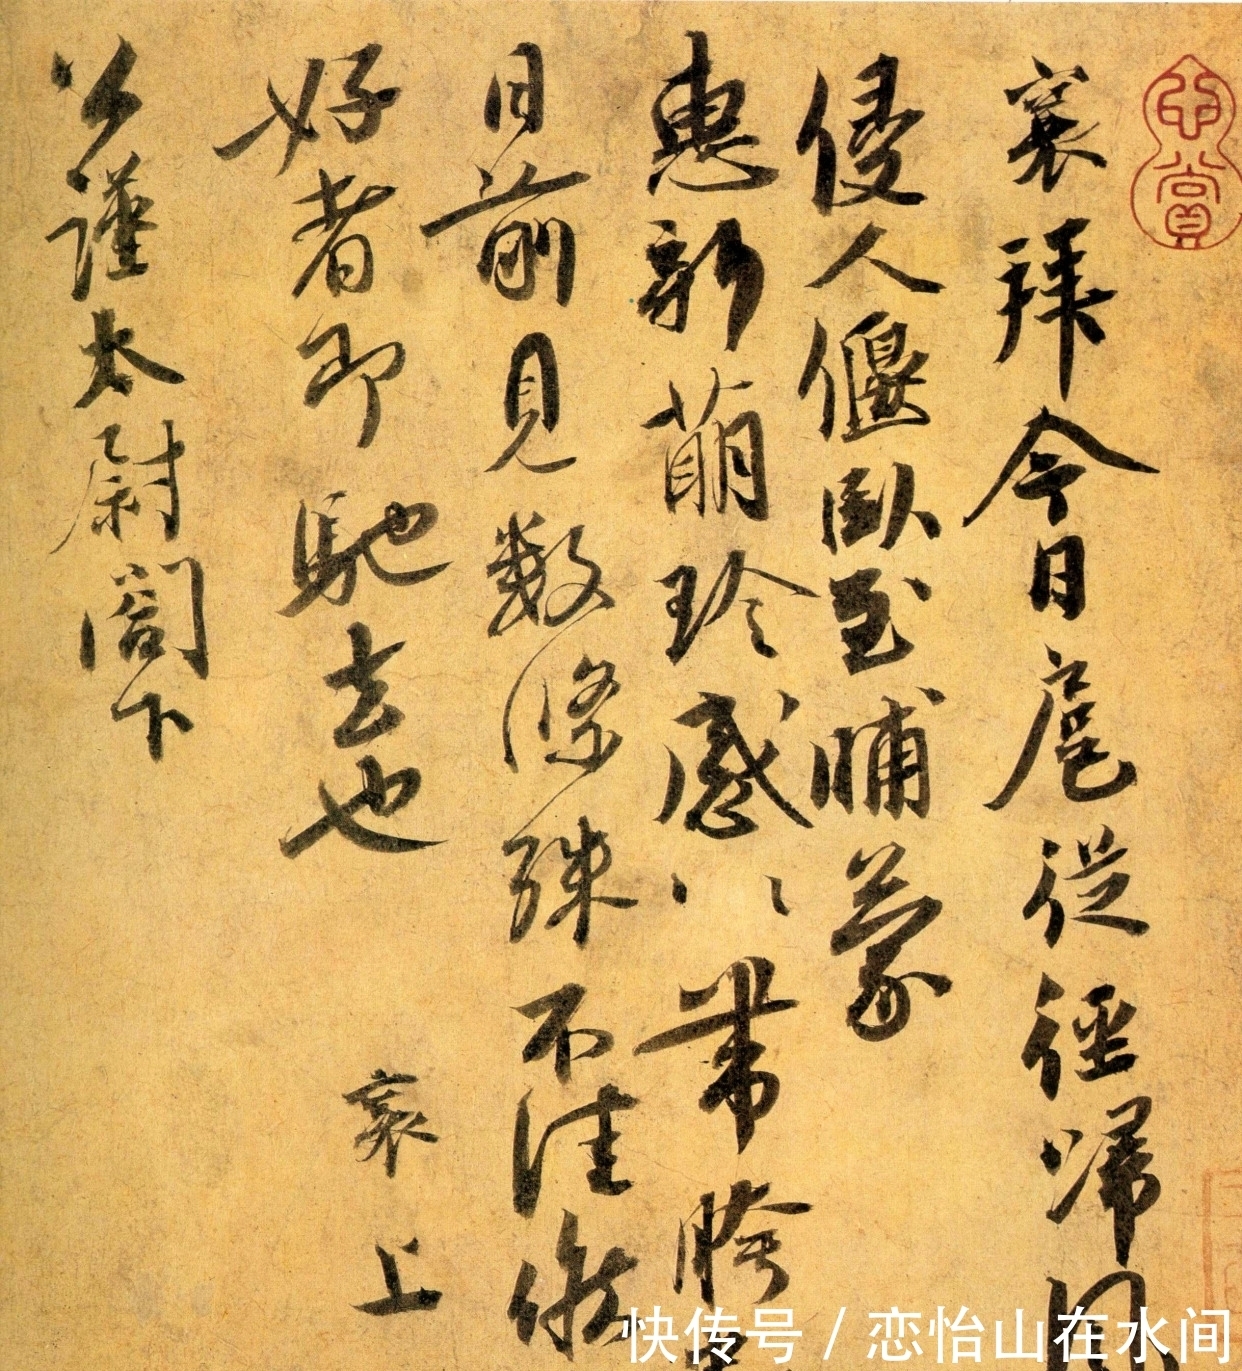 襄拜今日扈從徑歸風
侵人偃臥至晡蒙
惠新萌珍感〻帶胯
日前見數條殊不佳候
好者即馳去也 襄上
公謹太尉閤下
快传号 / 恋怡山在水间